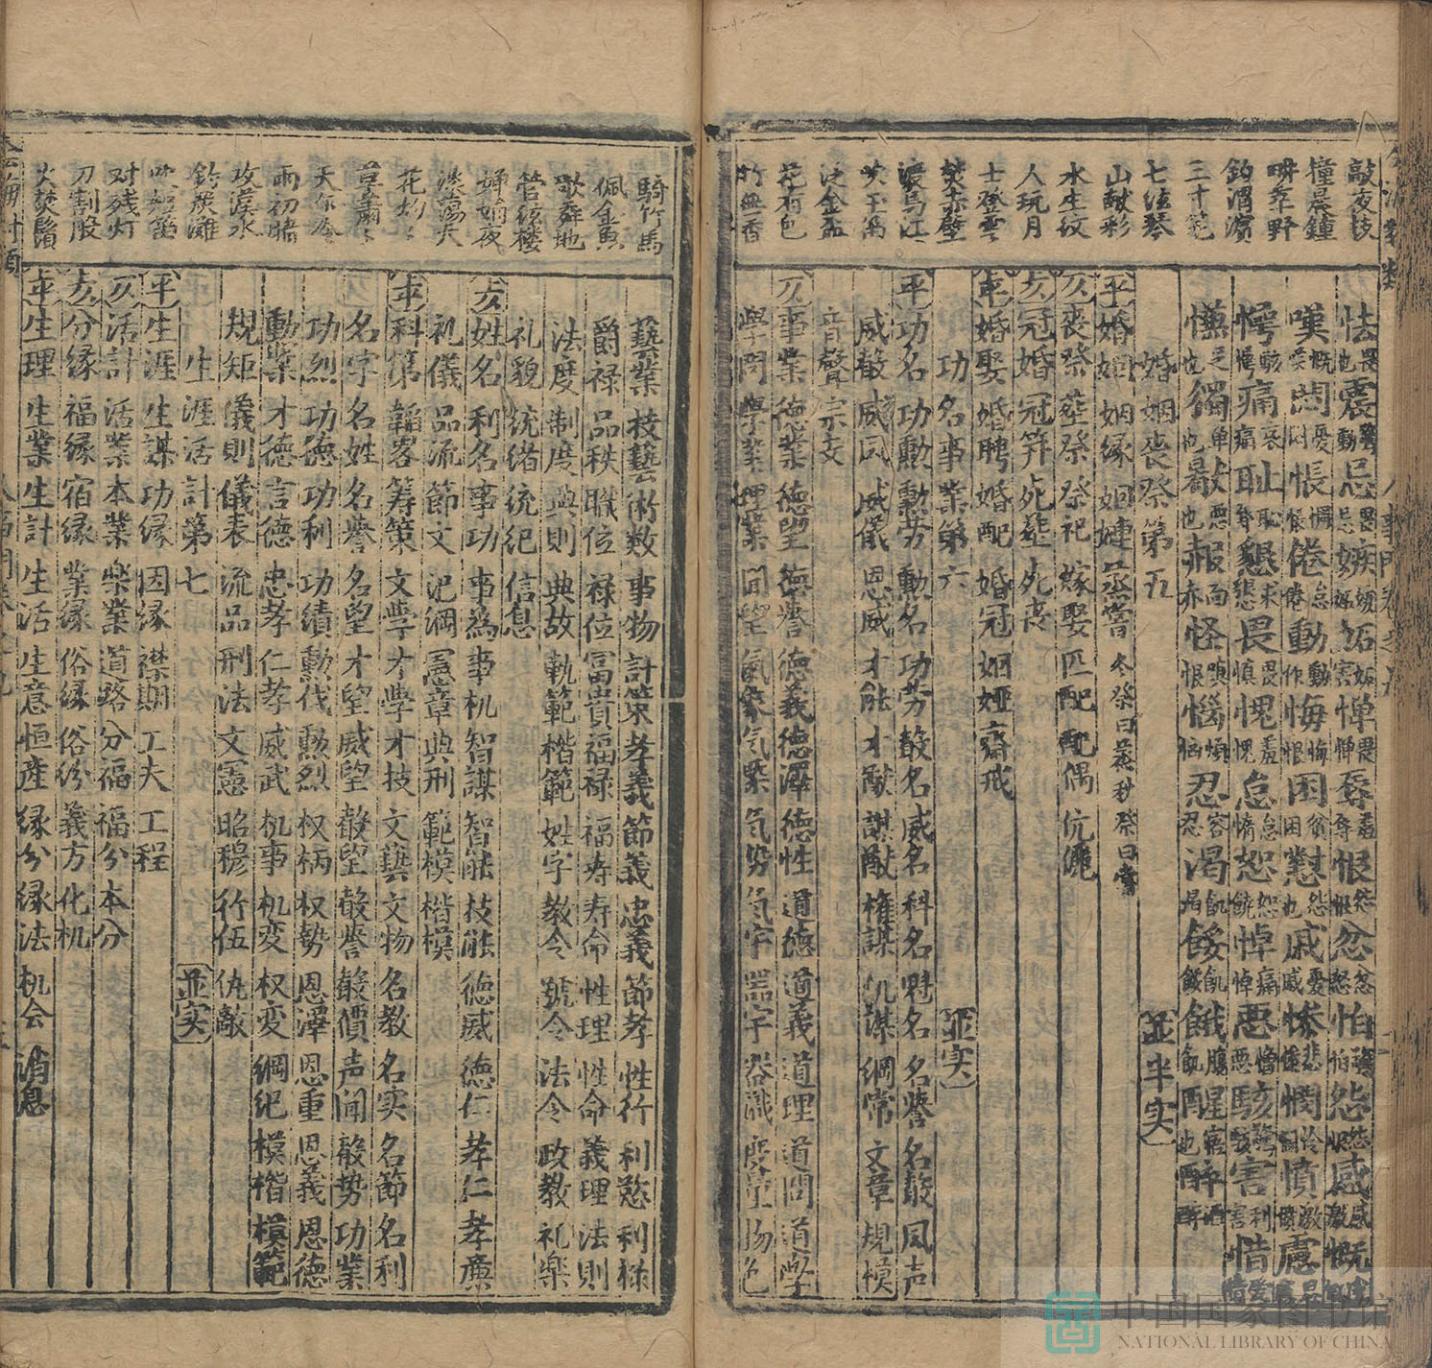 敲夜棋
撞晨鐘
耕莘野
釣渭濱
三十笔
七弦琴
山獻彩
水生紋
人玩月
士登雲
笑玉
泛金盃
花有色
竹無香
怯畏也震驚動忌嫉妬害憚畏辱恨怨忿怒怕怨感慨
嘆慨悶憂悵倦動作悔恨困窮懟怨也戚憂慘悲憫憤慮
愕駭痛哀耻懇畏慎愧羞怠惰恕悼痛惡憎駭害惜
懨足也獨单也歉也赧面赤怪恨惱忍容渴飢餒餓醒也醉
婚姻喪祭第五 並半实
婚姻 姻缘 姻婕 蒸嘗冬祭曰蒸秋祭曰嘗
喪祭 葬祭 祭祀 嫁娶 匹配 配偶 伉儷
冠婚 冠笄 死葬 死喪
平婚娶 婚聘 婚配 婚冠 姻婭 齋戒
功名事業第六 並实
平功名 功勳 勳劳 勳名 功劳 聲名 威名 科名 魁名 名譽 名聲 风声
威聲 威风 威儀 恩威 才能 才猷 謀猷 權謀 机謀 綱常 文章 規模
音聲 宗支
仄事業 德業 德望 德譽 德義 德澤 德性 道德 道義 道理 道問 道学
学問 学業 理業 聞望 氣象 气槩 气勢 气宇 器宇 器識 度量 物色
騎竹馬
佩金魚
歌舞地
管弦楼
婵娟夜
花
天
雨初晴
对残灯
刀割股
火焚鬚
藝業 技藝 術数 事物 計策 孝義 節義 忠義 節孝 性行 利慾 利祿
爵祿 品秩 職位 祿位 冨貴 福祿 福寿 寿命 性理 性命 義理 法則
法度 制度 典則 典故 軌範 楷範 姓字 教令 號令 法令 政教 礼楽
礼貌 统绪 统纪 信息
姓名 利名 事功 事為 事机 智謀 智能 技能 德威 德仁 孝仁 孝廉
礼儀 品流 節文 纪綱 憲章 典刑 範模 楷模
平科第 韜畧 筹策 文学 才学 才技 文藝 文物 名教 名实 名節 名利
名字 名姓 名譽 名望 才望 威望 聲望 聲譽 聲價 声聞 聲势 功業
功烈 功德 功利 功績 勳伐 勳烈 权柄 权勢 恩澤 恩重 恩義 恩德
動業 才德 言德 忠孝 仁孝 威武 机事 机变 权变 綱纪 模楷 模範
規矩 儀則 儀表 流品 刑法 文憲 昭穆 行伍 仇敵
生涯活計第七 並实
平生涯 生謀 功缘 因缘 襟期 工夫 工程
仄活計 活業 本業 楽業 道路 分福 福分 本分
分縁 福縁 宿縁 業縁 俗縁 俗分 義方 化机
生理 生業 生計 生活 生意 恒産 縁分 縁法 机会 消息
中国国家图书馆
NATIONAL LIBRARY OF CHINA